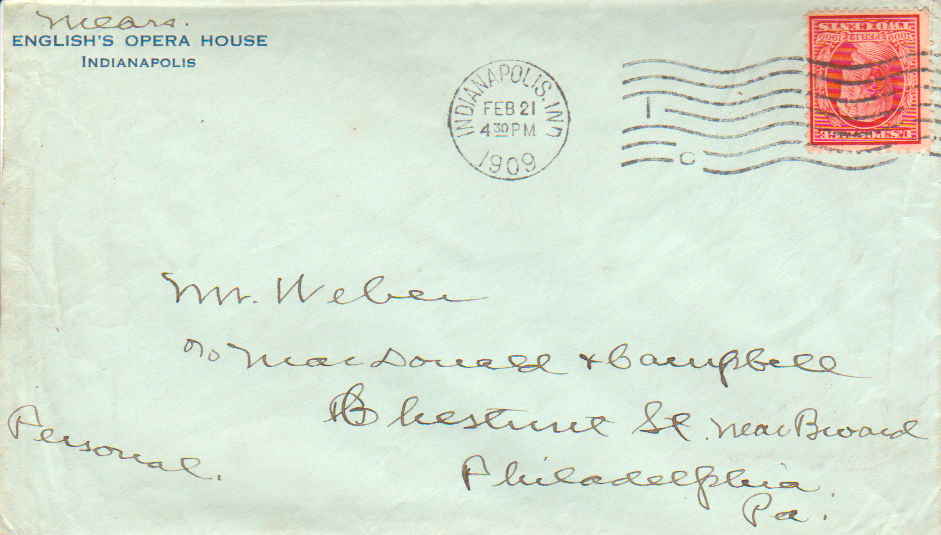 Mears.
ENGLISH'S OPERA HOUSE
INDIANAPOLIS
INDIANAPOLIS, IND
FEB 21
4 30 PM
1909
1
C
TWO CENTS
Mr. Weber
c/o MacDonald & Campbell
Chestnut St. near Broad
Philadelphia
Pa.
Personal.